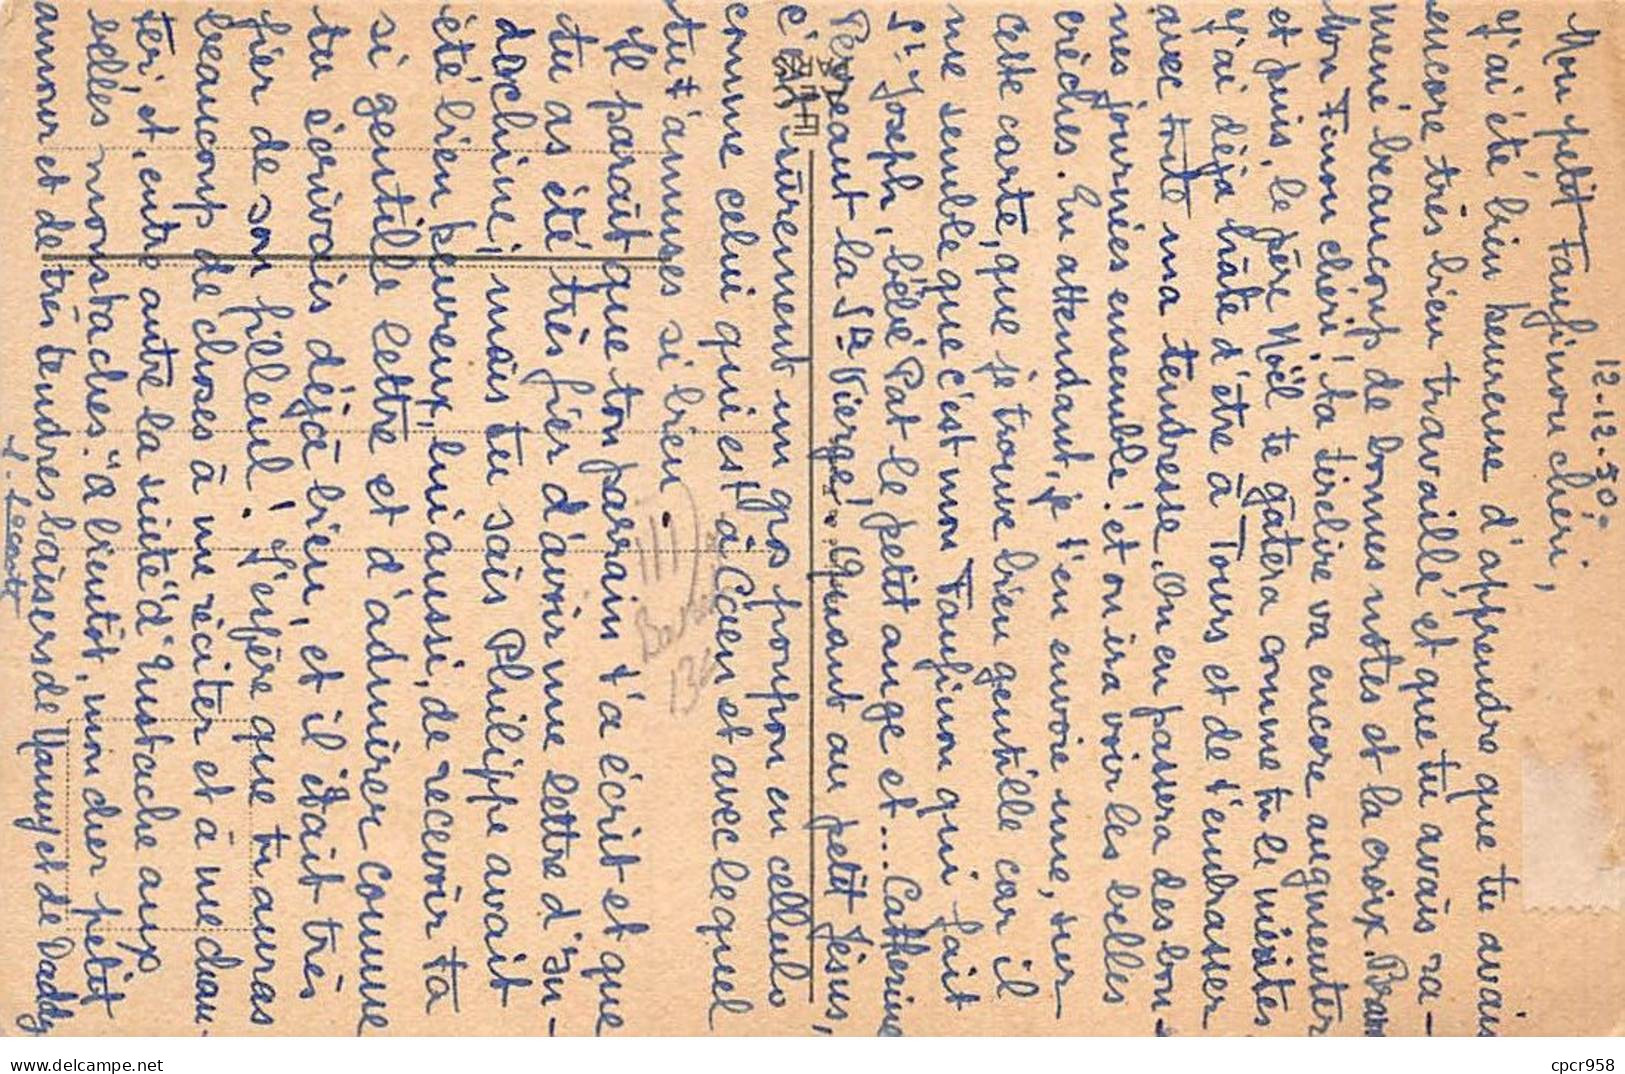 12.12.50.
Mon petit Fanfinou chéri,
J'ai été bien heureuse d'apprendre que tu avais
encore très bien travaillé et que tu avais ra-
mené beaucoup de bonnes notes et la croix. Bravo
Mon Finou chéri! ta tirelire va encore augmenter
et puis, le père Noël te gâtera comme tu le mérites
J'ai déjà hâte d'être à Tours et de t'embrasser
avec toute ma tendresse. On en passera des bon-
nes journées ensemble! et on ira voir les belles
crèches. En attendant, je t'en envoie une, sur
cette carte, que je trouve bien gentille car il
me semble que c'est mon Fanfinou qui fait
St Joseph, bébé Pat le petit ange et... Catherine
Perreaut la Ste Vierge! Quant au petit Jésus,
c'est sûrement un gros poupon en cellulo
comme celui qui est à Caen et avec lequel
tu t'amuses si bien
Il paraît que ton parrain t'a écrit et que
tu as été très fier d'avoir une lettre d'In-
dochine, mais tu sais Philippe avait
été bien heureux, lui aussi, de recevoir ta
si gentille lettre et d'admirer comme
tu écrivais déjà bien, et il était très
fier de son filleul! J'espère que tu auras
beaucoup de choses à me réciter et à me chan-
ter, et, entre autre la suite d'"Eustache aux
belles moustaches." A bientôt, mon cher petit
amour et de très tendres baisers de Manny et de Daddy
cpcr958